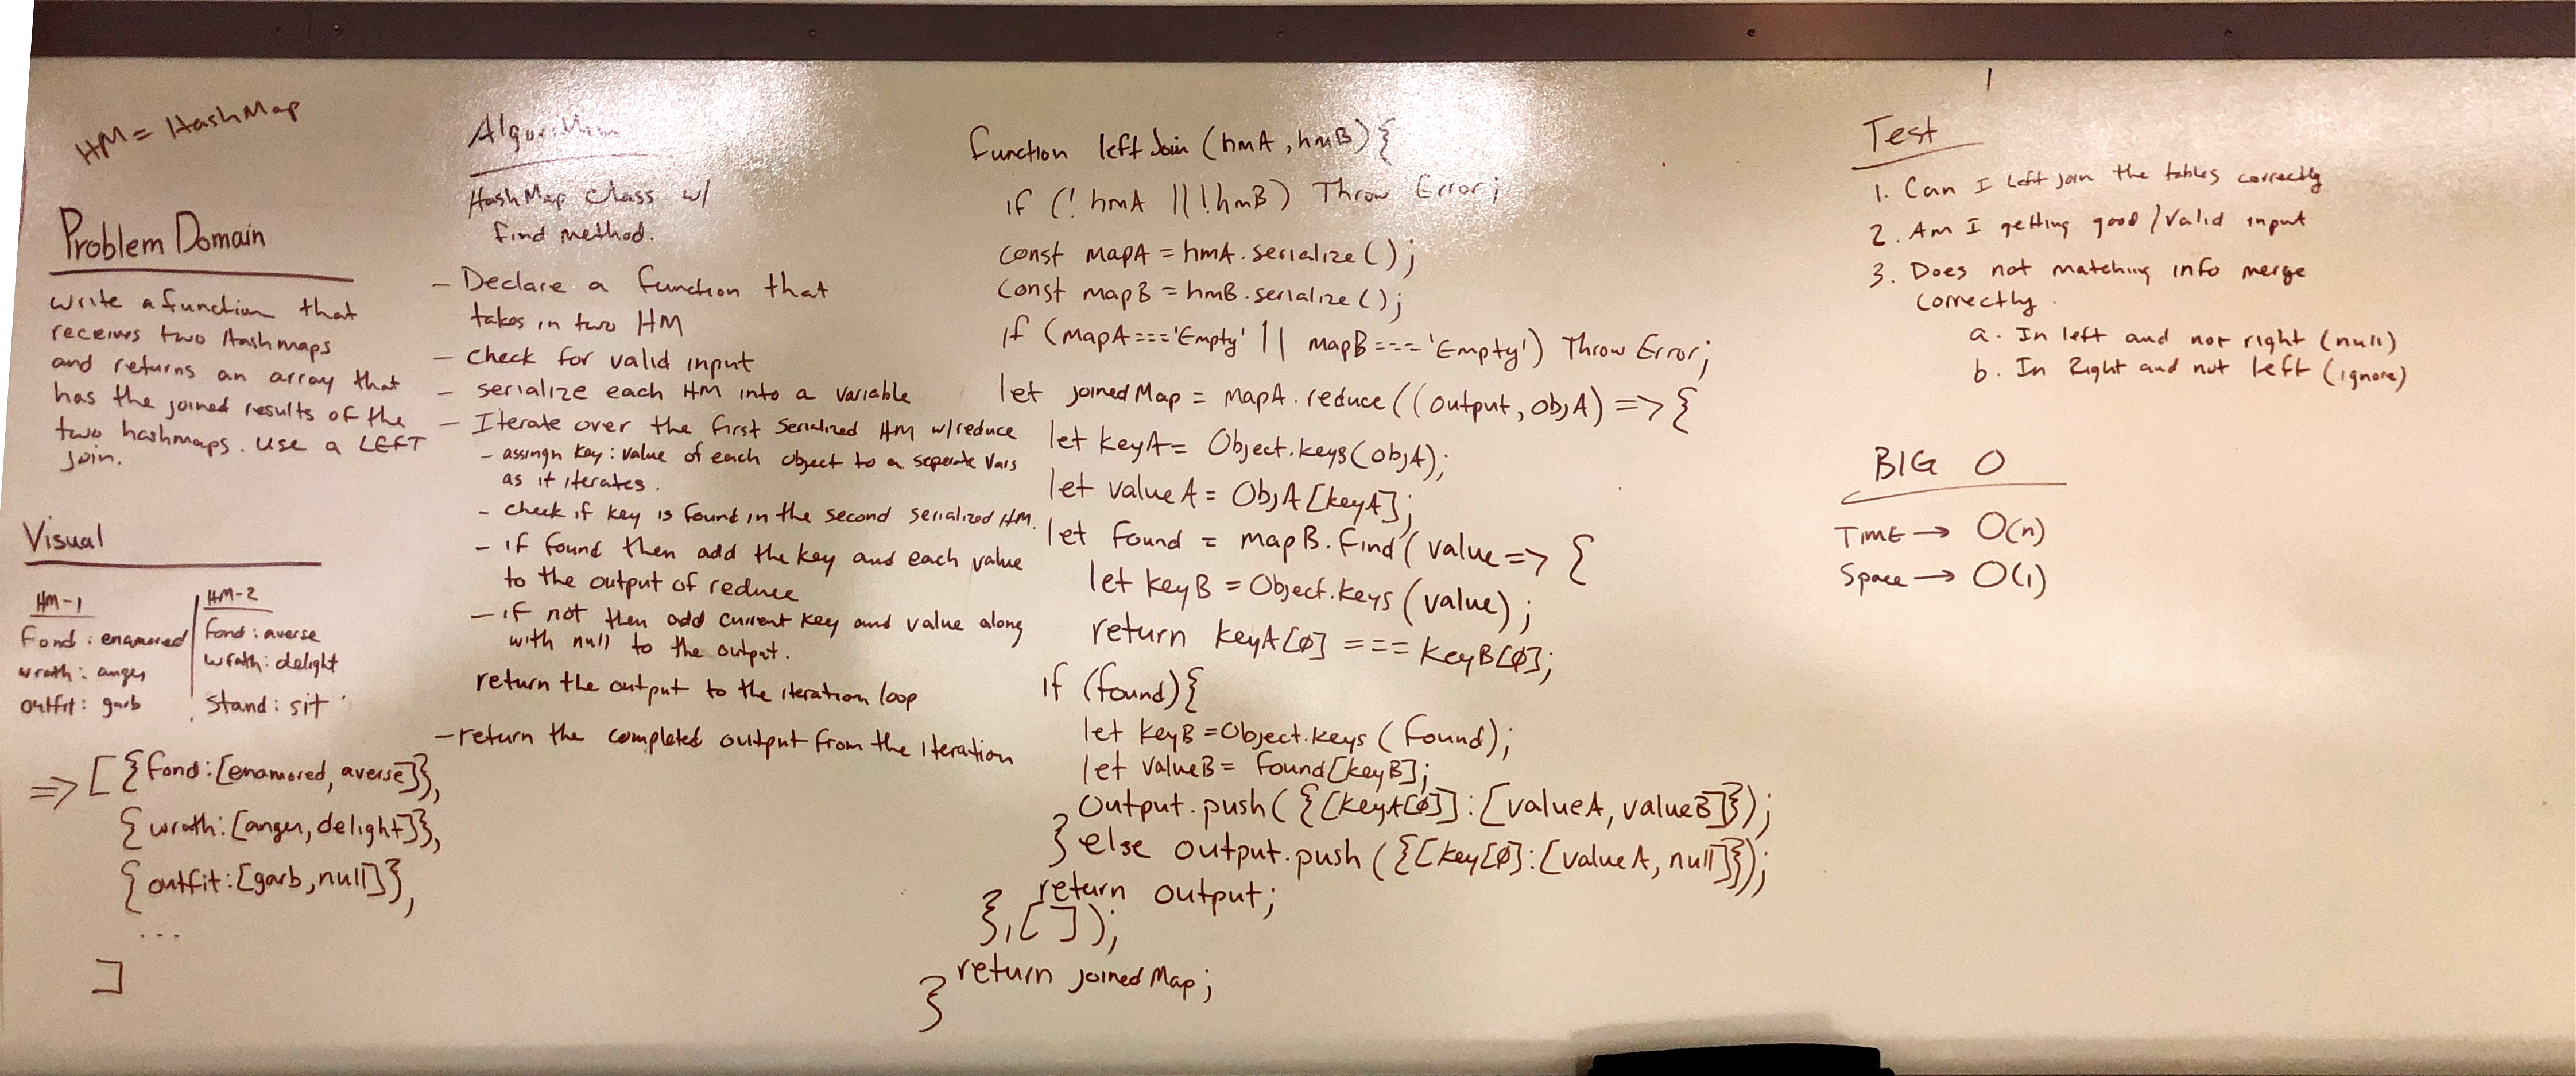 HM = HashMap
Problem Domain
Write a function that
receives two Hashmaps
and returns an array that
has the joined results of the
two hashmaps. Use a LEFT
Join.
Visual
HM-1
Fond : enamored
wrath : anger
outfit : garb
HM-2
Fond : averse
wrath : delight
Stand : sit
=> [ {fond:[enamored, averse]},
{wrath:[anger, delight]},
{outfit:[garb, null]},
...
]
Algorithm
HashMap Class w/
find method.
- Declare a function that
takes in two HM
- check for valid input
- serialize each HM into a variable
- Iterate over the first serialized HM w/reduce
- assingn key : value of each object to a seperate vars
as it iterates.
- check if key is found in the second serialized HM.
- if found then add the key and each value
to the output of reduce
- if not then add current key and value along
with null to the output.
return the output to the iteration loop
- return the completed output from the iteration
function leftJoin (hmA, hmB) {
if (! hmA || ! hmB) Throw Error;
const mapA = hmA.serialize();
const mapB = hmB.serialize();
if (mapA === 'Empty' || mapB === 'Empty') Throw Error;
let joinedMap = mapA.reduce((output, objA) => {
let keyA = Object.keys(objA);
let valueA = ObjA[keyA];
let found = mapB.find(value => {
let keyB = Object.keys(value);
return keyA[0] === keyB[0];
if (found) {
let keyB = Object.keys(found);
let valueB = found[keyB];
output.push({[keyA[0]]:[valueA, valueB]});
} else output.push({[key[0]:[valueA, null]});
return output;
}, []);
return joinedMap;
}
Test
1. Can I left join the tables correctly
2. Am I getting good / valid input
3. Does not matching info merge
correctly.
a. In left and not right (null)
b. In Right and not left (ignore)
BIG O
Time → O(n)
Space → O(1)